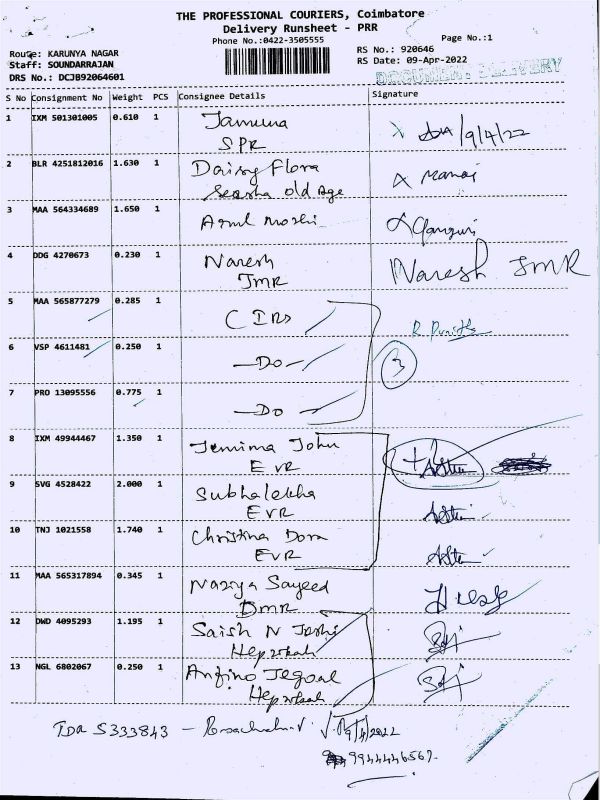 THE PROFESSIONAL COURIERS, Coimbatore
Delivery Runsheet - PRR
Phone No.:0422-3505555
Page No.:1
Route: KARUNYA NAGAR
Staff: SOUNDARRAJAN
DRS No.: DCJB92064601
RS No.: 920646
RS Date: 09-Apr-2022
DOCUMENT DELIVERY
S No Consignment No Weight PCS Consignee Details Signature
1 IXM 501301005 0.610 1 Jamuna
SPR
9/4/22
2 BLR 4251812016 1.630 1 Daisy Flora
Seesha Old Age
3 MAA 564334689 1.650 1 Arul Moshi
4 DDG 4270673 0.230 1 Naresh
JMR
Naresh JMR
5 MAA 565877279 0.285 1 CIRD
6 VSP 4611481 0.250 1 - Do -
3
7 PRO 13095556 0.775 1 - Do -
8 IXM 49944467 1.350 1 Jemima John
EVR
9 SVG 4528422 2.000 1 Subhalekha
EVR
10 TNJ 1021558 1.740 1 Christina Dora
EVR
11 MAA 565317894 0.345 1 Naziya Sayeed
DMR
12 DWD 4095293 1.195 1 Saish N Joshi
Hepzibah
13 NGL 6802067 0.250 1
Hepzibah
S333843 - 9/4/2022
9944446567